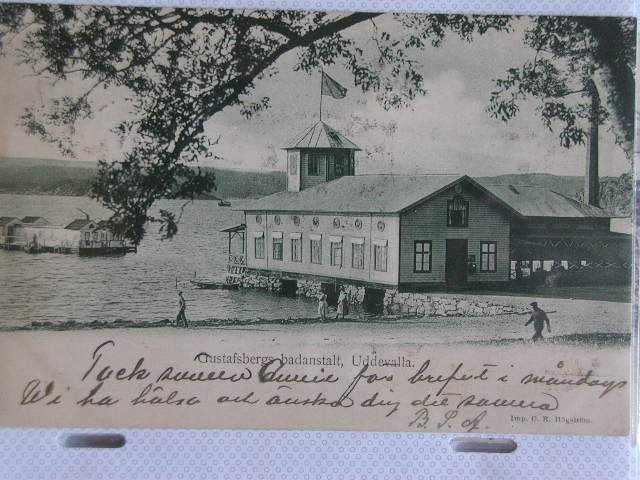 Gustafsbergs badanstalt, Uddevalla.
Tack för brefvet i måndags
Vi ha hälsa och önska dig det samma
B. S. A.
Imp. C. R. Högström.